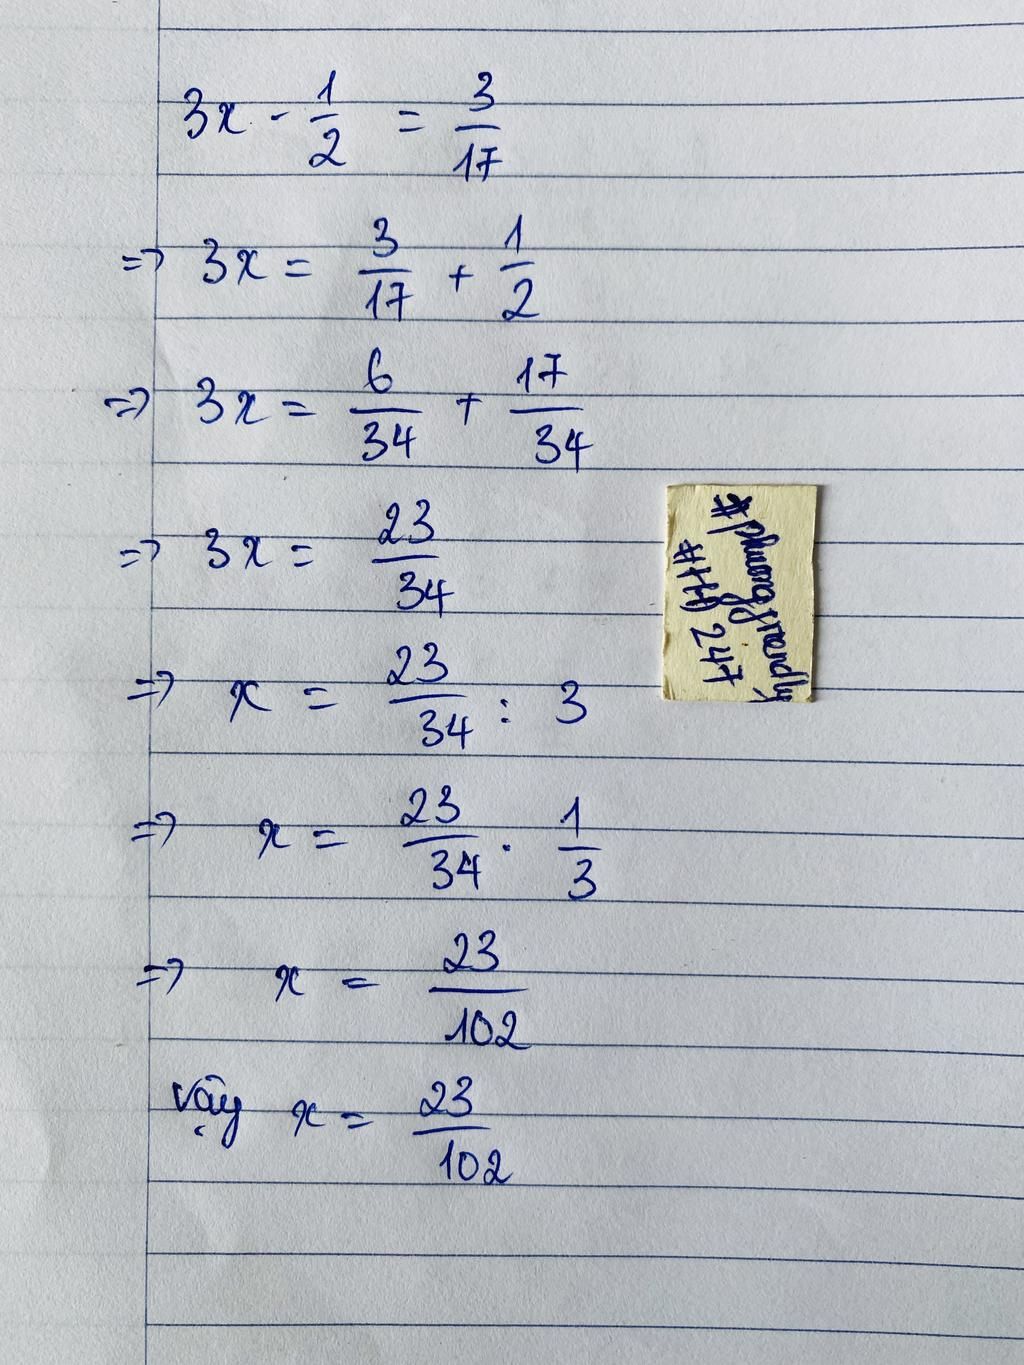 3x - 1/2 = 3/17
=> 3x = 3/17 + 1/2
=> 3x = 6/34 + 17/34
=> 3x = 23/34
=> x = 23/34 : 3
=> x = 23/34 . 1/3
=> x = 23/102
Vậy x = 23/102
#phuongfriendly
#HĐ 247